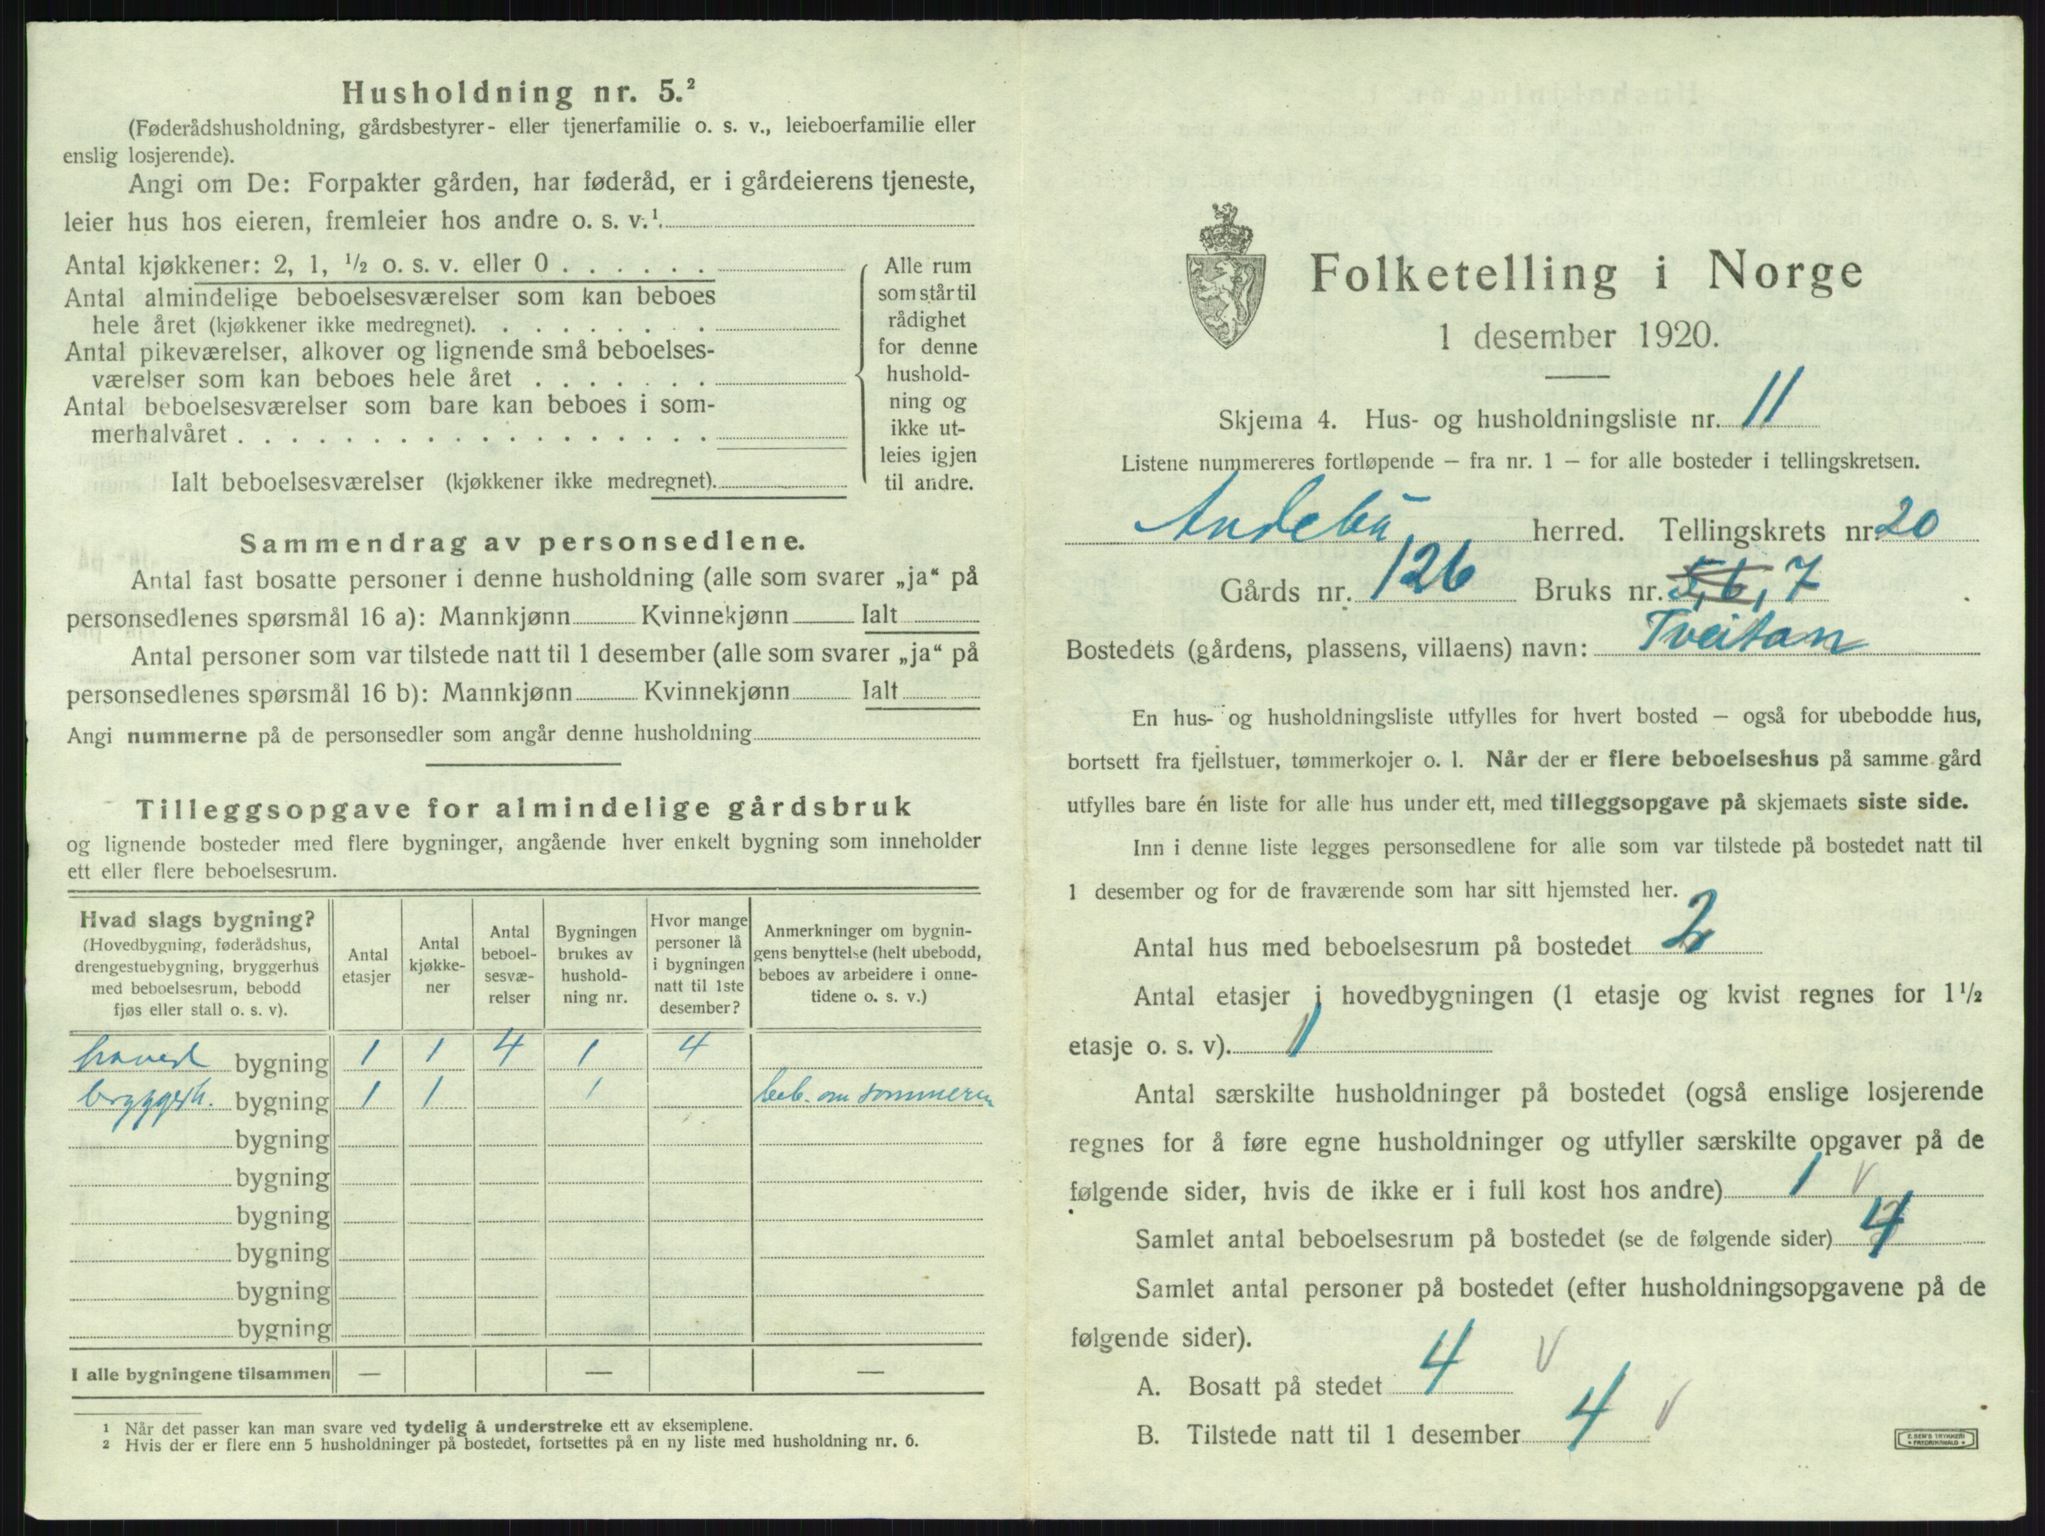 Husholdning nr. 5.²
(Føderådshusholdning, gårdsbestyrer- eller tjenerfamilie o. s. v., leieboerfamilie eller
enslig losjerende).
Angi om De: Forpakter gården, har føderåd, er i gårdeierens tjeneste,
leier hus hos eieren, fremleier hos andre o. s. v.¹
Antal kjøkkener: 2, 1, ½ o. s. v. eller 0
Antal almindelige beboelsesværelser som kan beboes
hele året (kjøkkener ikke medregnet).
Antal pikeværelser, alkover og lignende små beboelses-
værelser som kan beboes hele året
Antal beboelsesværelser som bare kan beboes i som-
merhalvåret
Ialt beboelsesværelser (kjøkkener ikke medregnet).
Alle rum
som står til
rådighet
for denne
hushold-
ning og
ikke ut-
leies igjen
til andre.
Sammendrag av personsedlene.
Antal fast bosatte personer i denne husholdning (alle som svarer „ja" på
personsedlenes spørsmål 16 a): Mannkjønn Kvinnekjønn Ialt
Antal personer som var tilstede natt til 1 desember (alle som svarer „ja" på
personsedlenes spørsmål 16 b): Mannkjønn Kvinnekjønn Ialt
Angi nummerne på de personsedler som angår denne husholdning
Tilleggsopgave for almindelige gårdsbruk
og lignende bosteder med flere bygninger, angående hver enkelt bygning som inneholder
ett eller flere beboelsesrum.
Hvad slags bygning?
(Hovedbygning, føderådshus,
drengestuebygning, bryggerhus
med beboelsesrum, bebodd
fjøs eller stall o. s. v).
Antal
etasjer
Antal
kjøkke-
ner
Antal
beboel-
sesvæ-
relser
Bygningen
brukes av
hushold-
ning nr.
Hvor mange
personer lå
i bygningen
natt til 1ste
desember?
Anmerkninger om bygnin-
gens benyttelse (helt ubebodd,
beboes av arbeidere i onne-
tidene o. s. v.)
hoved bygning 1 1 4 1 4
bryggerh. bygning 1 1 1 beb. om sommeren
bygning
bygning
bygning
bygning
bygning
bygning
I alle bygningene tilsammen — — —
¹ Når det passer kan man svare ved tydelig å understreke ett av eksemplene.
² Hvis der er flere enn 5 husholdninger på bostedet, fortsettes på en ny liste med husholdning nr. 6.
Folketelling i Norge
1 desember 1920.
Skjema 4. Hus- og husholdningsliste nr. 11
Listene nummereres fortløpende – fra nr. 1 – for alle bosteder i tellingskretsen.
Andebu herred. Tellingskrets nr. 20
Gårds nr. 126 Bruks nr. 5, 6, 7
Bostedets (gårdens, plassens, villaens) navn: Tveitan
En hus- og husholdningsliste utfylles for hvert bosted – også for ubebodde hus,
bortsett fra fjellstuer, tømmerkojer o. l. Når der er flere beboelseshus på samme gård
utfylles bare én liste for alle hus under ett, med tilleggsopgave på skjemaets siste side.
Inn i denne liste legges personsedlene for alle som var tilstede på bostedet natt til
1 desember og for de fraværende som har sitt hjemsted her.
Antal hus med beboelsesrum på bostedet 2
Antal etasjer i hovedbygningen (1 etasje og kvist regnes for 1½
etasje o. s. v). 1
Antal særskilte husholdninger på bostedet (også enslige losjerende
regnes for å føre egne husholdninger og utfyller særskilte opgaver på de
følgende sider, hvis de ikke er i full kost hos andre) 1 v
Samlet antal beboelsesrum på bostedet (se de følgende sider) 4
Samlet antal personer på bostedet (efter husholdningsopgavene på de
følgende sider).
A. Bosatt på stedet 4 v
B. Tilstede natt til 1 desember 4 v